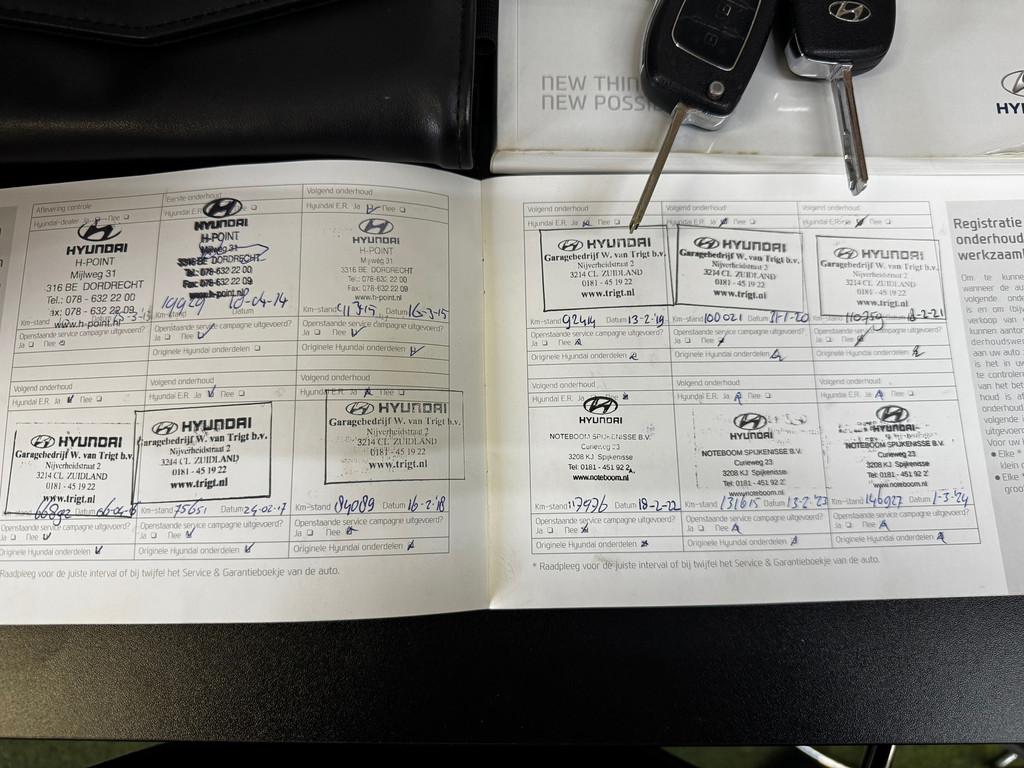 NEW THIN
NEW POSSI
HY
Aflevering controle
Hyundai-dealer Ja Nee
HYUNDAI
H-POINT
Mijlweg 31
316 BE DORDRECHT
Tel.: 078 - 632 22 00
ax: 078 - 632 22 09
www.h-point.nl
Eerste onderhoud
Hyundai E.R. Ja Nee
HYUNDAI
H-POINT
Mijlweg 31
3316 BE DORDRECHT
Tel.: 078-632 22 00
Fax: 078-632 22 09
www.h-point.nl
19929 18-04-14
Km-stand Datum
Openstaande service campagne uitgevoerd?
Ja Nee
Originele Hyundai onderdelen
Volgend onderhoud
Hyundai E.R. Ja Nee
HYUNDAI
H-POINT
Mijlweg 31
3316 BE DORDRECHT
Tel.: 078-632 22 00
Fax: 078-632 22 09
www.h-point.nl
Km-stand 411315 Datum 16-3-15
Openstaande service campagne uitgevoerd?
Ja Nee
Originele Hyundai onderdelen
Volgend onderhoud
Hyundai E.R. Ja Nee
HYUNDAI
Garagebedrijf W. van Trigt b.v.
Nijverheidstraat 2
3214 CL ZUIDLAND
0181 - 45 19 22
www.trigt.nl
66892 Datum
Openstaande service campagne uitgevoerd?
Ja Nee
Originele Hyundai onderdelen
Volgend onderhoud
Hyundai E.R. Ja Nee
HYUNDAI
Garagebedrijf W. van Trigt b.v.
Nijverheidstraat 2
3214 CL ZUIDLAND
0181 - 45 19 22
www.trigt.nl
Km-stand 75651 Datum 24-02-17
Openstaande service campagne uitgevoerd?
Ja Nee
Originele Hyundai onderdelen
Volgend onderhoud
Hyundai E.R. Ja Nee
HYUNDAI
Garagebedrijf W. van Trigt b.v.
Nijverheidstraat 2
3214 CL ZUIDLAND
0181 - 45 19 22
www.trigt.nl
Km-stand 84089 Datum 16-2-'18
Openstaande service campagne uitgevoerd?
Ja Nee
Originele Hyundai onderdelen
Raadpleeg voor de juiste interval of bij twijfel het Service & Garantieboekje van de auto.
Volgend onderhoud
Hyundai E.R. Ja Nee
HYUNDAI
Garagebedrijf W. van Trigt b.v.
Nijverheidstraat 2
3214 CL ZUIDLAND
0181 - 45 19 22
www.trigt.nl
Km-stand 92414 Datum 13-2-'19
Openstaande service campagne uitgevoerd?
Ja Nee
Originele Hyundai onderdelen
Volgend onderhoud
Hyundai E.R. Ja Nee
HYUNDAI
Garagebedrijf W. van Trigt b.v.
Nijverheidstraat 2
3214 CL ZUIDLAND
0181 - 45 19 22
www.trigt.nl
Km-stand 100021 Datum 21-1-20
Openstaande service campagne uitgevoerd?
Ja Nee
Originele Hyundai onderdelen
Volgend onderhoud
Hyundai E.R. Nee
HYUNDAI
Garagebedrijf W. van Trigt b.v.
Nijverheidstraat 2
3214 CL ZUIDLAND
0181 - 45 19 22
www.trigt.nl
Km-stand 110759 Datum
Openstaande service campagne uitgevoerd?
Ja Nee
Originele Hyundai onderdelen
Volgend onderhoud
Hyundai E.R. Ja Nee
HYUNDAI
NOTEBOOM SPIJKENISSE B.V.
Curieweg 23
3208 KJ Spijkenisse
Tel: 0181 - 451 922
www.noteboom.nl
Km-stand 117936 Datum 18-2-22
Openstaande service campagne uitgevoerd?
Ja Nee
Originele Hyundai onderdelen
Volgend onderhoud
Hyundai E.R. Ja Nee
HYUNDAI
NOTEBOOM SPIJKENISSE B.V.
Curieweg 23
3208 KJ Spijkenisse
Tel: 0181 - 451 92 2
www.noteboom.nl
Km-stand 131615 Datum 13-2-'23
Openstaande service campagne uitgevoerd?
Ja Nee
Originele Hyundai onderdelen
Volgend onderhoud
Hyundai E.R. Ja Nee
HYUNDAI
NOTEBOOM SPIJKENISSE B.V.
Curieweg 23
3208 KJ Spijkenisse
Tel: 0181 - 451 92 2
www.noteboom.nl
Km-stand 146927 Datum 1-3-'24
Openstaande service campagne uitgevoerd?
Ja Nee
Originele Hyundai onderdelen
* Raadpleeg voor de juiste interval of bij twijfel het Service & Garantieboekje van de auto.
Registratie
onderhoud
werkzaam
Om te kunne
wanneer de au
volgende onder
is en om (bij
verkoop van
kunnen aanton
derhoudswe
aan uw auto
is het in uw
te controler
van het bet
houd is af
onderhoud
volgende
uitgevoer
Voor uw
Elke
klein
Elke
groo